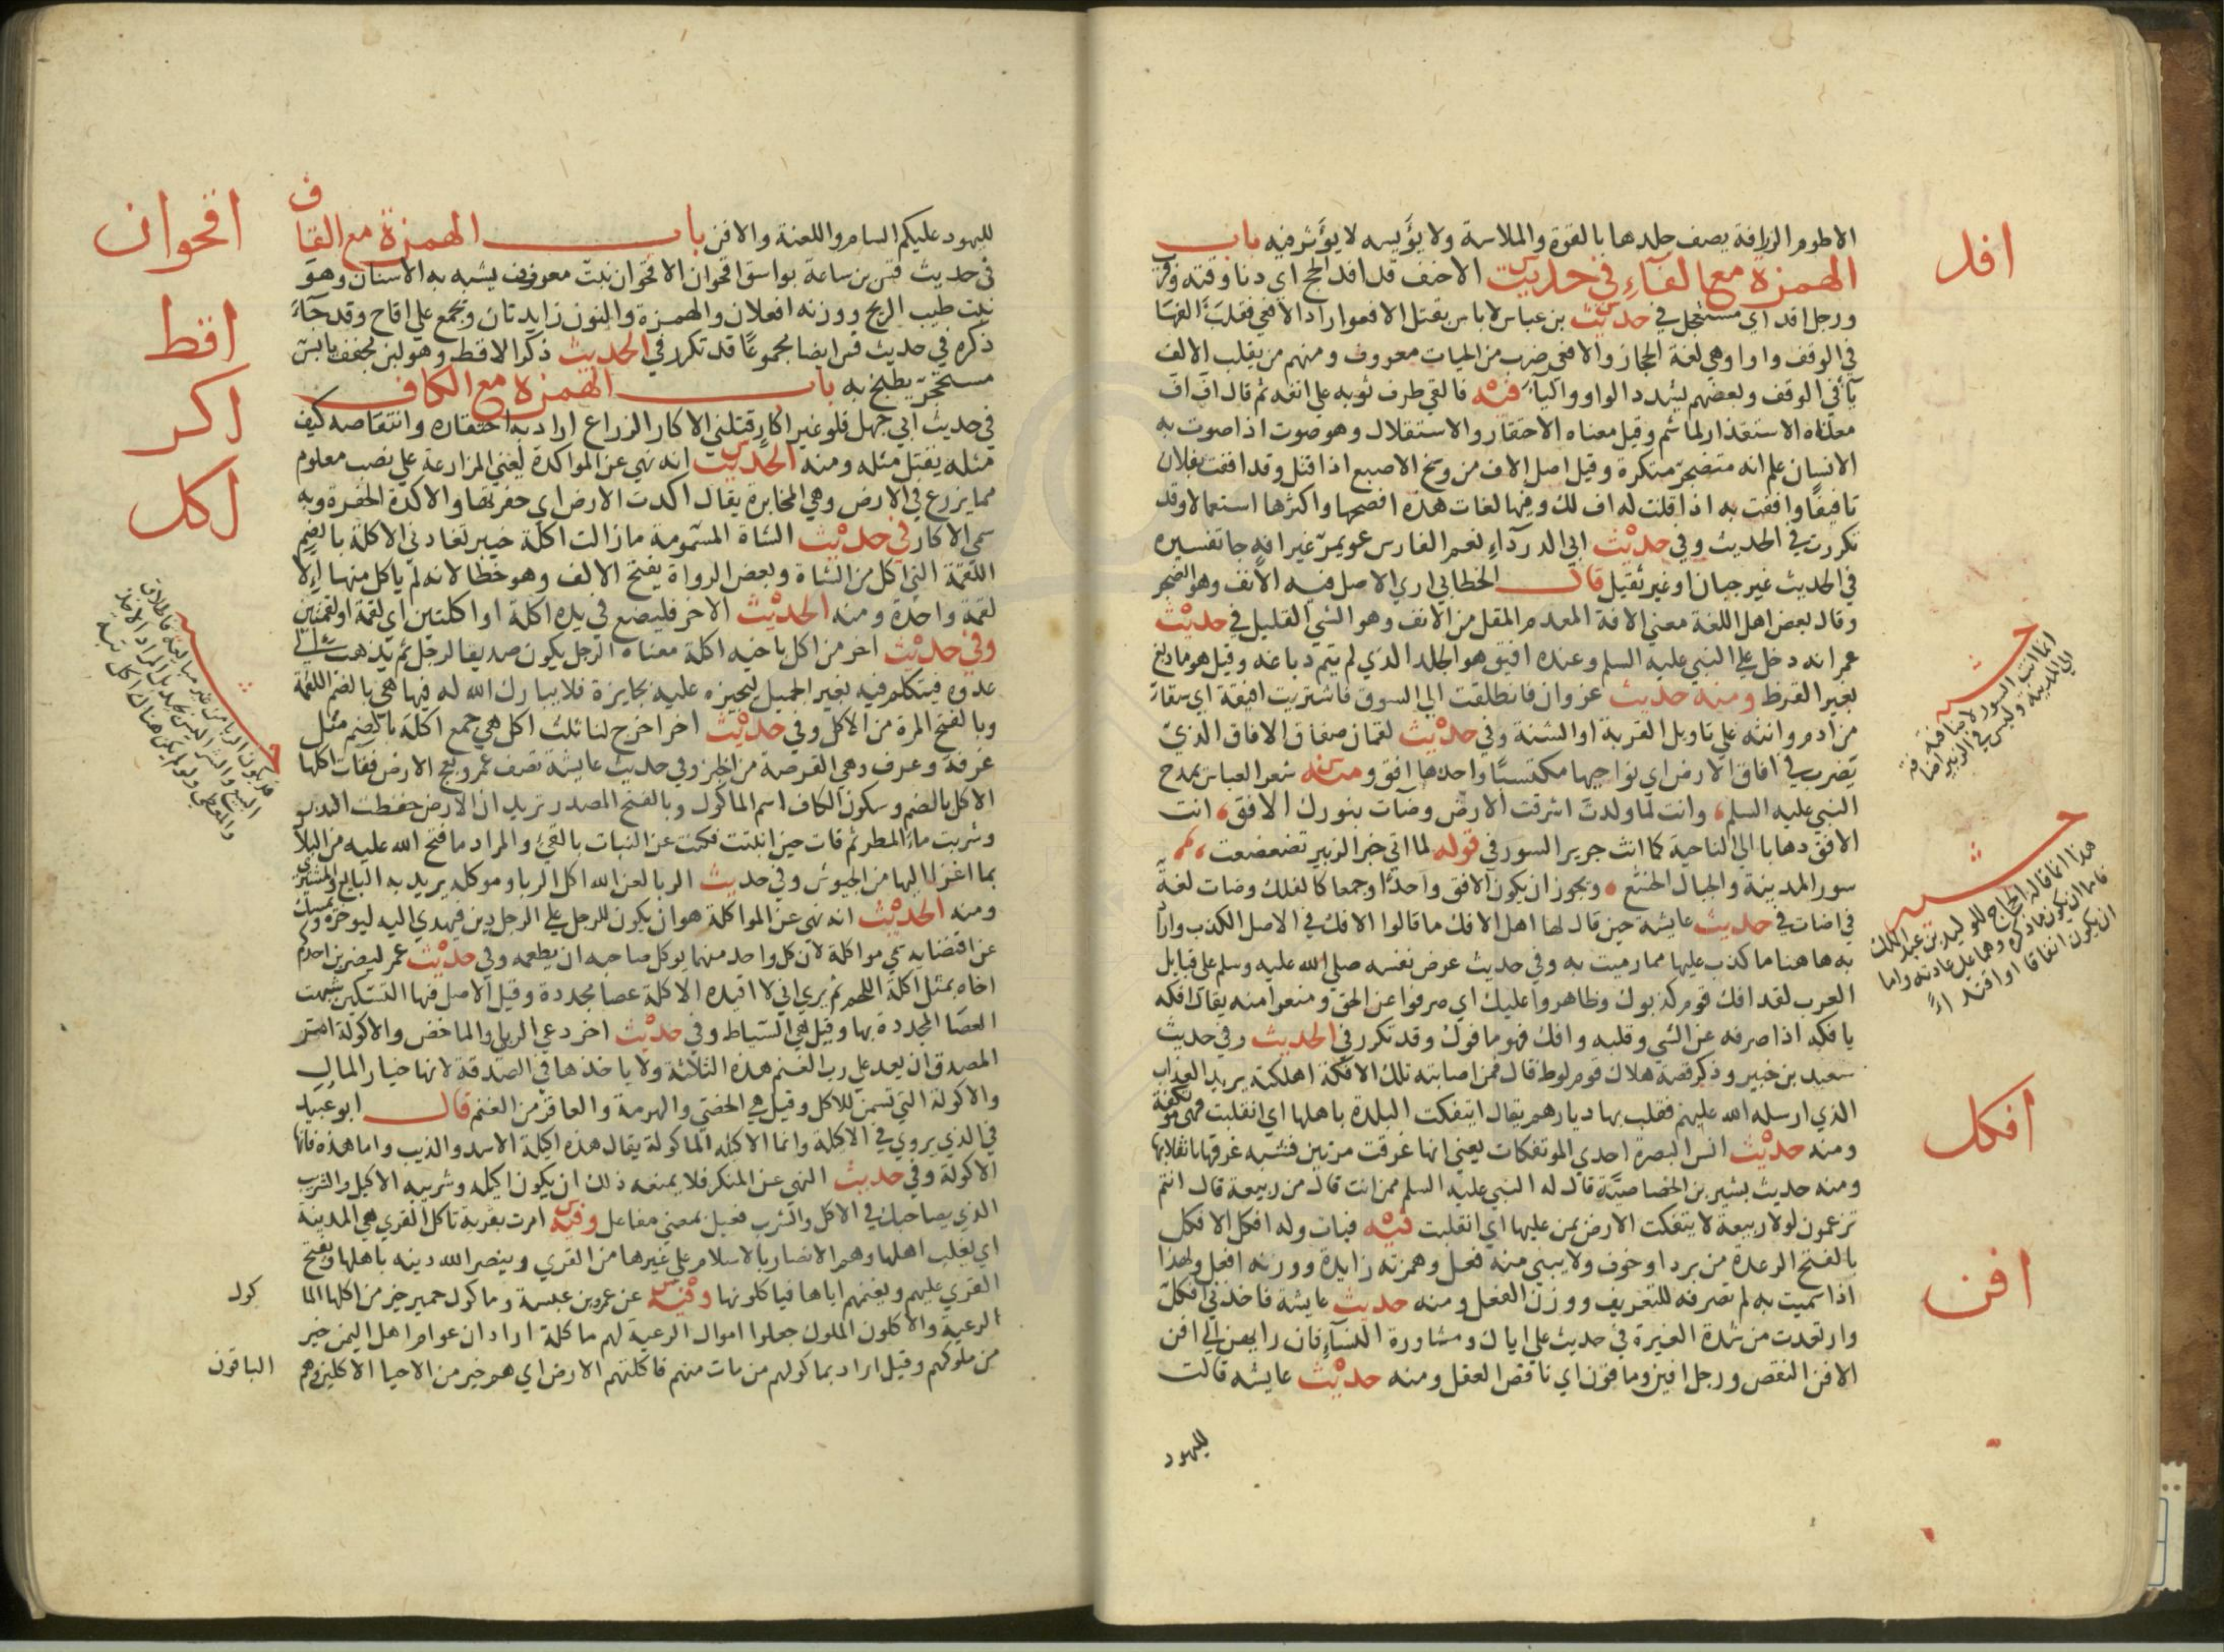 الاطوم الزرافة يصف جلدها بالقوة والملاسة ولا يؤيسه لا يؤثر فيه باب
الهمزة مع الفآء في حديث الاحنف قد افد الحج اي دنا وقته وقرب
ورجل افد اي مستعجل في حديث بن عباس لاباس بقتل الافعو اراد الافعي فقلبت الفها
في الوقف واوا وهي لغة الحجاز والافعي ضرب من الحيات معروف ومنهم من يقلب الالف
يآ في الوقف وبعضهم يشدد الواو واليآ فيه فالقي طرف ثوبه علي انفه ثم قال اف اف
معناه الاستقذار لما شم وقيل معناه الاحتقار والاستقلال وهو صوت اذا صوت به
الانسان علم انه متضجر متكره وقيل اصل الاف من وسخ الاصبع اذا فتل وقد اففت بفلان
تافيفا واففت به اذا قلت له اف لك وفيها لغات هذه افصحها واكثرها استعمالا وقد
تكررت في الحديث وفي حديث ابي الدردآء نعم الفارس عويمر غير افة جا تفسيره
في الحديث غير جبان او غير ثقيل قال الخطابي اري الاصل فيه الافف وهو الضجر
وقال بعض اهل اللغة معني الافة المعدم المقل من الافف وهو الشي القليل في حديث
عمر انه دخل علي النبي عليه السلم وعنده افيق هو الجلد الذي لم يتم دباغه وقيل هو ما دبغ
بغير القرظ ومنه حديث غزوان فانطلقت الي السوق فاشتريت افيقة اي سقاء
من ادم وانثه علي تاويل القربة او الشنة وفي حديث لقمان صفاق الافاق الذي
يضرب في افاق الارض اي نواحيها مكتسبا واحدها افق ومنه شعر العباس يمدح
النبي عليه السلم، وانت لما ولدت اشرقت الارض وضآت بنورك الافق، انت
الافق ذهابا الي الناحية كما انث جرير السور في قوله لما اتي خبر الزبير تضعضعت،
سور المدينة والجبال الخشع، ويجوز ان يكون الافق واحدا وجمعا كالفلك وضات لغة
في اضات في حديث عايشه حين قال لها اهل الافك ما قالوا الافك في الاصل الكذب واراد
به هاهنا ما كذب عليها مما رميت به وفي حديث عرض نفسه صلي الله عليه وسلم علي قبايل
العرب لقد افك قوم كذبوك وظاهروا عليك اي صرفوا عن الحق ومنعوا منه يقال افكه
يافكه اذا صرفه عن الشي وقلبه وافك فهو مافوك وقد تكرر في الحديث وفي حديث
سعيد بن جبير وذكر قصة هلاك قوم لوط قال فمن اصابته تلك الافكة اهلكته يريد العذاب
الذي ارسله الله عليهم فقلب بها ديارهم يقال ايتفكت البلدة باهلها اي انقلبت فهي موتفكة
ومنه حديث انس البصرة احدي الموتفكات يعني انها غرقت مرتين فشبه غرقها بانقلابها
ومنه حديث بشير بن الخصاصية قال له النبي عليه السلم ممن انت قال من ربيعة قال انتم
تزعمون لولا ربيعة لايتفكت الارض بمن عليها اي انقلبت فيه فبات وله افكل الافكل
بالفتح الرعدة من برد او خوف ولا يبني منه فعل وهمزته زايدة ووزنه افعل ولهذا
اذا سميت به لم تصرفه للتعريف ووزن الفعل ومنه حديث عايشة فاخذني افكل
وارتعدت من شدة الغيرة في حديث علي اياك ومشاورة النسآء فان رايهن الي افن
الافن النقص ورجل افين ومافون اي ناقص العقل ومنه حديث عايشه قالت
لليهود
افد
حـــث
انما انث السور لاضافته
الي المدينة وليس في الزبير اضافة
حـــث
هذا انما قاله الحجاج للوليد بن عبد الملك
افكل
افن
لليهود عليكم السام واللعنة والافن باب الهمزة مع القاف
في حديث قس بن ساعة بواسق اقحوان الاقحوان نبت معروف يشبه به الاسنان وهو
نبت طيب الريح ووزنه افعلان والهمزة والنون زايدتان ويجمع علي اقاح وقد جآء
ذكره في حديث قس ايضا مجموعا قد تكرر في الحديث ذكر الاقط وهو لبن مجفف يابس
مستحجر يطبخ به باب الهمزة مع الكاف
في حديث ابي جهل فلو غير اكار قتلني الاكار الزراع اراد به احتقاره وانتقاصه كيف
مثله يقتل مثله ومنه الحديث انه نهي عن المواكرة يعني المزارعة علي نصيب معلوم
مما يزرع في الارض وهي المخابرة يقال اكرت الارض اي حفرتها والاكرة الحفرة وبه
سمي الاكار في حديث الشاة المسمومة ما زالت اكلة خيبر تعادني الاكلة بالضم
اللقمة التي اكل من الشاة وبعض الرواة يفتح الالف وهو خطا لانه لم ياكل منها الا
لقمة واحدة ومنه الحديث الاخر فليضع في يده اكلة او اكلتين اي لقمة او لقمتين
وفي حديث اخر من اكل باخيه اكلة معناه الرجل يكون صديقا لرجل ثم يذهب الي
عدوه فيتكلم فيه بغير الجميل ليجيزه عليه بجايزة فلا يبارك الله له فيها هي بالضم اللقمة
وبالفتح المرة من الاكل وفي حديث اخر اخرج لنا ثلث اكل هي جمع اكلة بالضم مثل
غرفة وغرف وهي القرصة من الخبز وفي حديث عايشة تصف عمر وبعج الارض فقات اكلها
الاكل بالضم وسكون الكاف اسم الماكول وبالفتح المصدر تريد ان الارض حفظت البذر
وشربت ماء المطر ثم قات حين انبتت فكنت عن النبات بالقي والمراد ما فتح الله عليه من البلاد
بما اغزا اليها من الجيوش وفي حديث الربا لعن الله اكل الربا وموكله يريد به البايع والمشتري
ومنه الحديث انه نهي عن المواكلة هو ان يكون للرجل علي الرجل دين فيهدي اليه ليوخره ويمسك
عن اقتضايه سمي مواكلة لان كل واحد منهما يوكل صاحبه ان يطعمه وفي حديث عمر ليضربن احدكم
اخاه بمثل اكلة اللحم ثم يري اني لا اقيده الاكلة عصا محددة وقيل الاصل فيها السكين شبهت
العصا المحددة بها وقيل هي السياط وفي حديث اخر دع الربي والماخض والاكولة امر
المصدق ان يعد علي رب الغنم هذه الثلاثة ولا ياخذها في الصدقة لانها خيار المال
والاكولة التي تسمن للاكل وقيل هي الخصي والهرمة والعاقر من الغنم قال ابو عبيد
في الذي يروي في الاكلة وانما الاكيله الماكولة يقال هذه اكيلة الاسد والذيب واما هذه فانها
الاكولة وفي حديث النهي عن المنكر فلا يمنعه ذلك ان يكون اكيله وشريبه الاكيل والشريب
الذي يصاحبك في الاكل والشرب فعيل بمعني مفاعل وفيه امرت بقرية تاكل القري هي المدينة
اي يغلب اهلها وهم الانصار بالاسلام علي غيرها من القري وينصر الله دينه باهلها ويفتح
القري عليهم ويغنمهم اياها فياكلونها وفيه عن عمرو بن عبسة وماكول حمير خير من اكلها الما
كول
الرعية والاكلون الملوك جعلوا اموال الرعية لهم ماكلة اراد ان عوام اهل اليمن خير
من ملوكهم وقيل اراد بماكولهم من مات منهم فاكلتهم الارض اي هم خير من الاحيا الاكلين وهم
الباقون
اقحوان
اقط
اكر
اكل